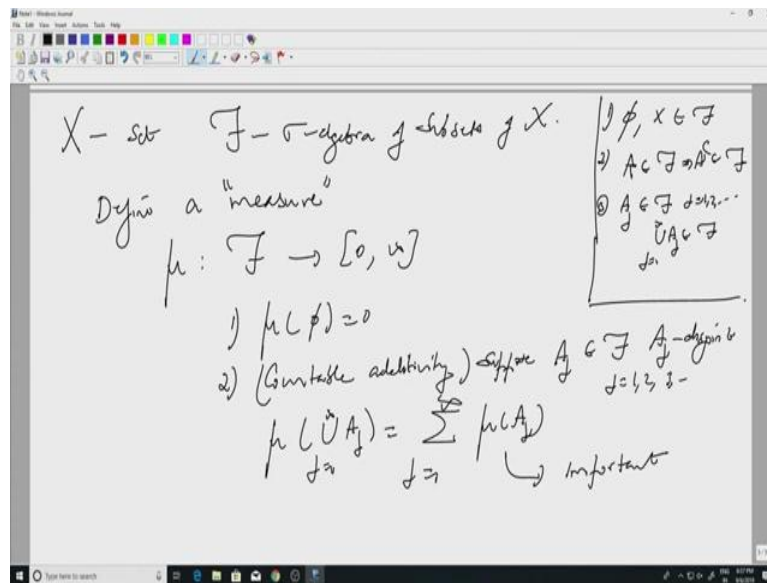 Note1 - Windows Journal
File Edit View Insert Actions Tools Help
X - set F - σ-algebra of subsets of X.
Define a "measure"
μ : F → [0, ∞]
1) μ(φ) = 0
2) (Countable additivity) Suppose A_j ∈ F A_j - disjoint
j = 1, 2, 3 -
μ(∪_{j=1}^∞ A_j) = ∑_{j=1}^∞ μ(A_j)
↳ important
1) φ, X ∈ F
2) A ∈ F ⇒ A^c ∈ F
3) A_j ∈ F j=1,2,...
∪_{j=1}^∞ A_j ∈ F
Type here to search
ENG 6:17 PM